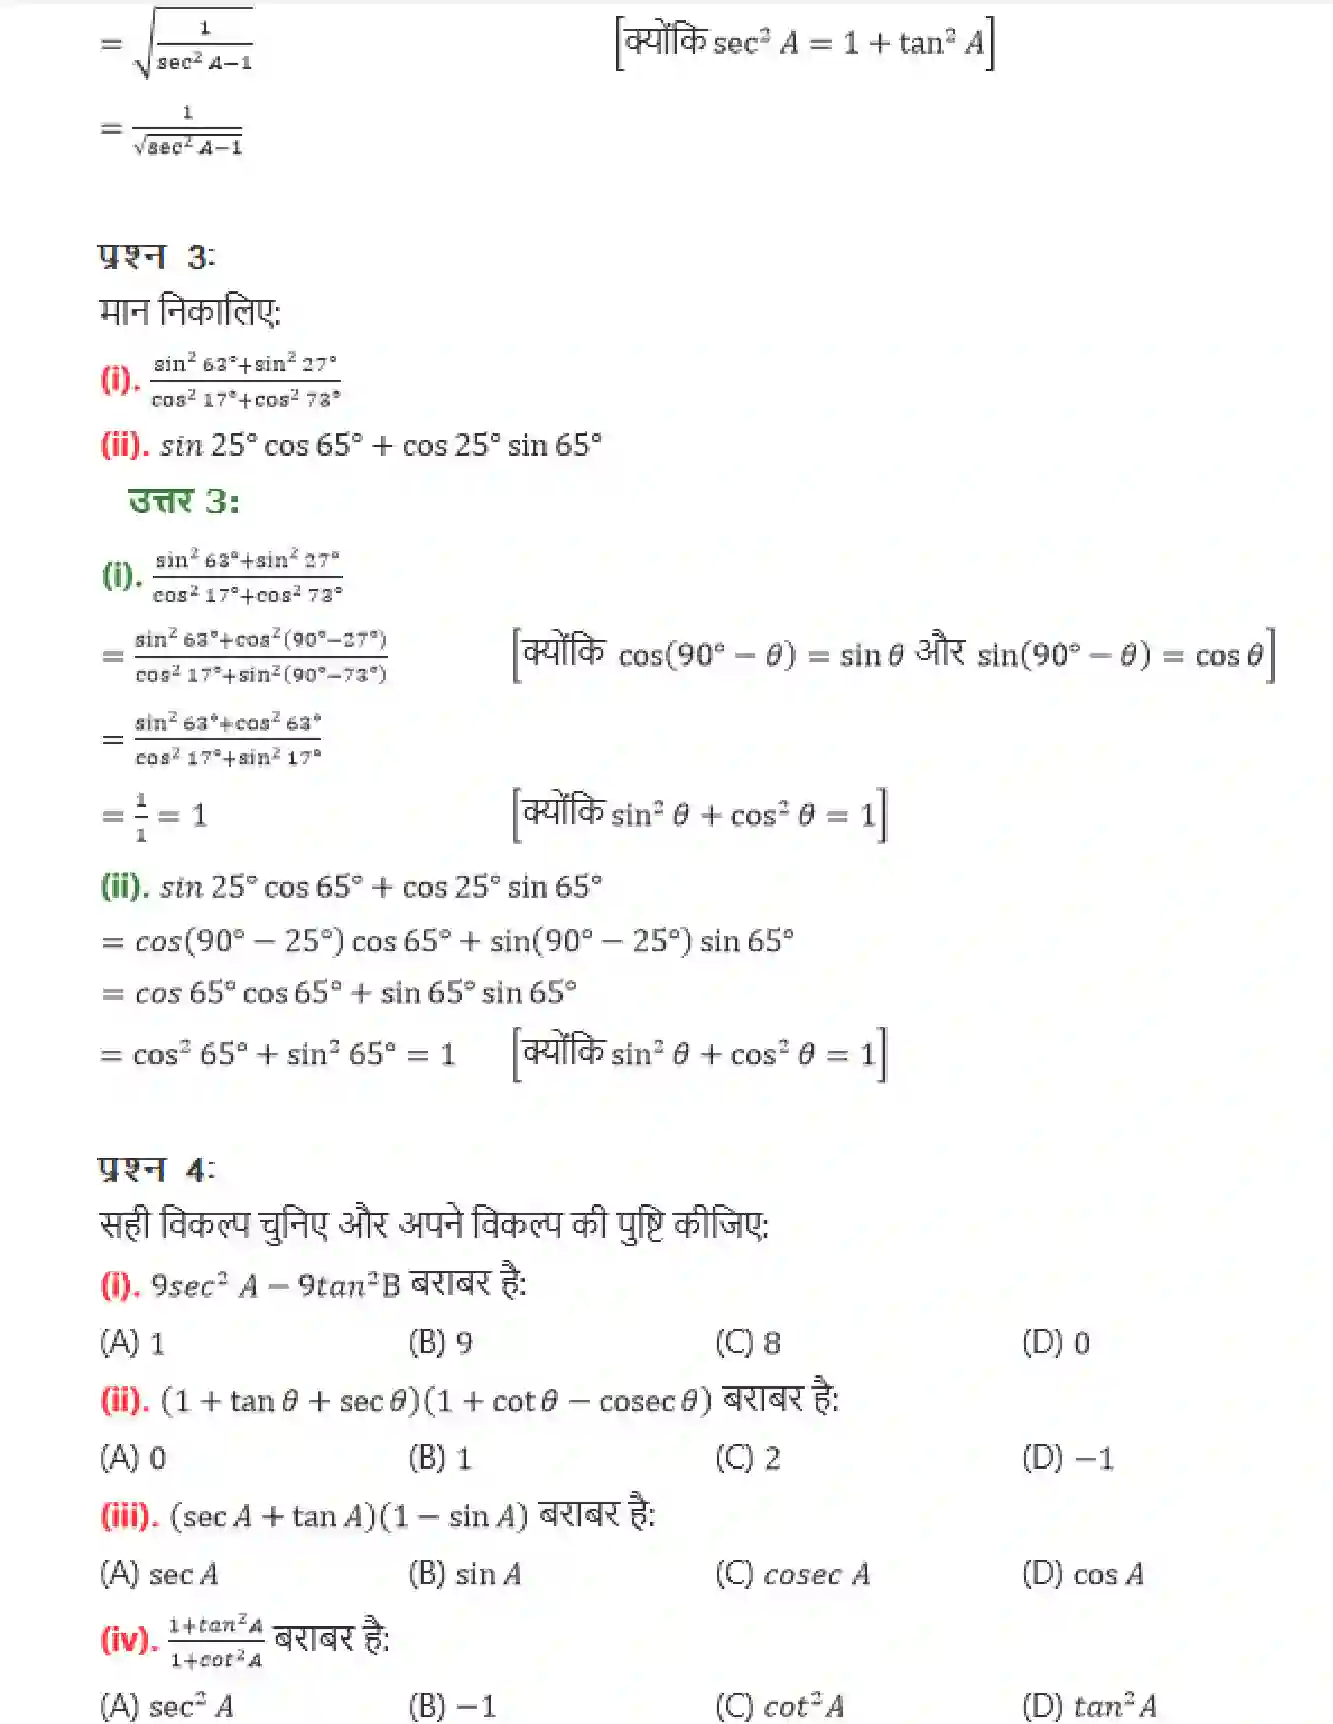 = √(1/(sec² A−1)) [क्योंकि sec² A = 1 + tan² A]
= 1/√(sec² A−1)
प्रश्न 3:
मान निकालिए:
(i). (sin² 63°+sin² 27°)/(cos² 17°+cos² 73°)
(ii). sin 25° cos 65° + cos 25° sin 65°
उत्तर 3:
(i). (sin² 63°+sin² 27°)/(cos² 17°+cos² 73°)
= (sin² 63°+cos²(90°−27°))/(cos² 17°+sin²(90°−73°)) [क्योंकि cos(90° − θ) = sin θ और sin(90° − θ) = cos θ]
= (sin² 63°+cos² 63°)/(cos² 17°+sin² 17°)
= 1/1 = 1 [क्योंकि sin² θ + cos² θ = 1]
(ii). sin 25° cos 65° + cos 25° sin 65°
= cos(90° − 25°) cos 65° + sin(90° − 25°) sin 65°
= cos 65° cos 65° + sin 65° sin 65°
= cos² 65° + sin² 65° = 1 [क्योंकि sin² θ + cos² θ = 1]
प्रश्न 4:
सही विकल्प चुनिए और अपने विकल्प की पुष्टि कीजिए:
(i). 9sec² A − 9tan²B बराबर है:
(A) 1 (B) 9 (C) 8 (D) 0
(ii). (1 + tan θ + sec θ)(1 + cot θ − cosec θ) बराबर है:
(A) 0 (B) 1 (C) 2 (D) −1
(iii). (sec A + tan A)(1 − sin A) बराबर है:
(A) sec A (B) sin A (C) cosec A (D) cos A
(iv). (1+tan²A)/(1+cot²A) बराबर है:
(A) sec² A (B) −1 (C) cot²A (D) tan²A